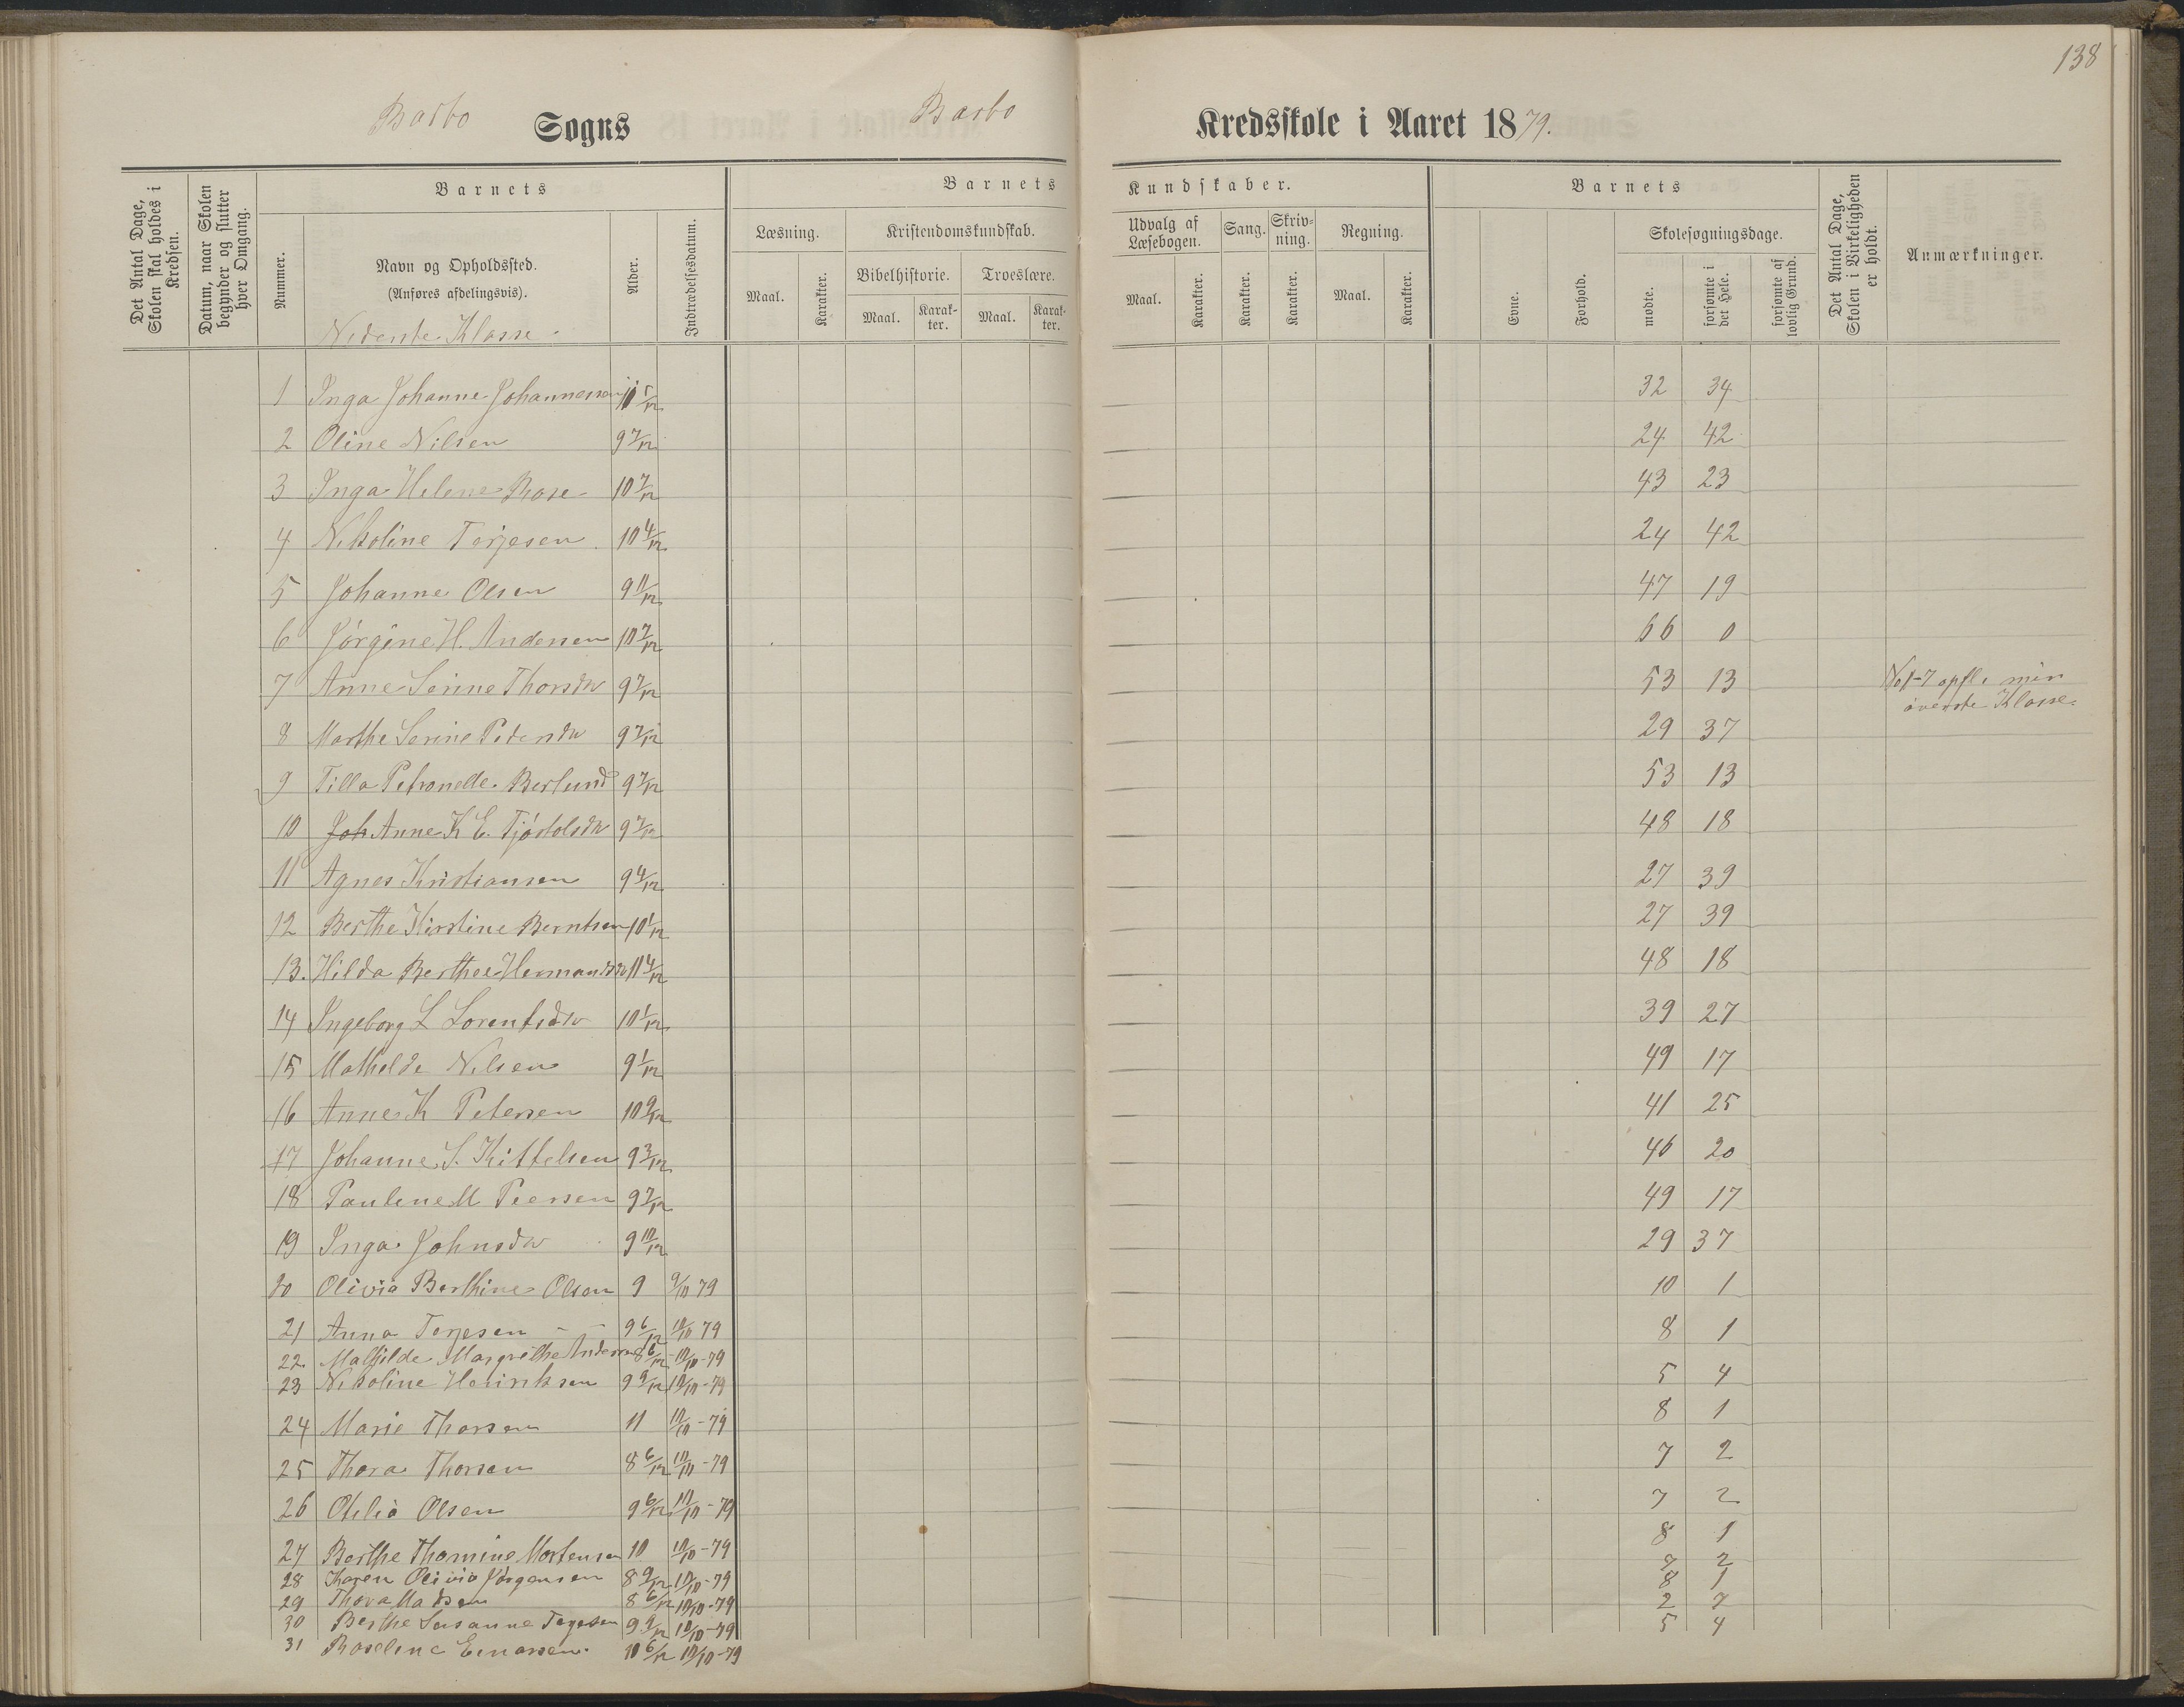 138
Barbo Sogns Barbo Kredsskole i Aaret 1879.
Det Antal Dage, Skolen skal holdes i Kredsen.
Datum, naar Skolen begynder og slutter hver Omgang.
Barnets
Nummer.
Navn og Opholdssted.
(Anføres afdelingsvis).
Nederste Klasse
Alder.
Indtrædelsesdatum.
Barnets Kundskaber.
Læsning.
Maal.
Karakter.
Kristendomskundskab.
Bibelhistorie.
Maal.
Karakter.
Troeslære.
Maal.
Karakter.
Udvalg af Læsebogen.
Maal.
Karakter.
Sang.
Karakter.
Skrivning.
Karakter.
Regning.
Maal.
Karakter.
Barnets
Evne.
Forhold.
Skolesøgningsdage.
mødte.
forsømte i det Hele.
forsømte af lovlig Grund.
Det Antal Dage, Skolen i Virkeligheden er holdt.
Anmærkninger.
1 Inga Johanne Johannessen 5/12 32 34
2 Oline Nilsen 9 7/12 24 42
3 Inga Helene Rose 10 7/12 43 23
4 Nikoline Terjesen 10 4/12 24 42
5 Johanne Olsen 9 11/12 47 19
6 Jørgine H. Andersen 10 7/12 66 0
7 Anne Serine Thorsdtr 9 7/12 53 13 No 1-7 opfl. øverste Klasse.
8 Marthe Serine Pedersdtr 9 7/12 29 37
9 Tilla Petronelle Berlund 9 7/12 53 13
10 Joh Anne K E. Tjøstolsdtr 9 7/12 48 18
11 Agnes Kristiansen 9 4/12 27 39
12 Berthe Kirstine Berntsen 10 1/12 27 39
13. Hilda Berthee Hermansdtr 11 4/12 48 18
14 Ingeborg L Lorentsdtr 10 1/12 39 27
15 Mathilde Nilsen 9 1/12 49 17
16 Anne K Petersen 10 9/12 41 25
17 Johanne S. Kittelsen 9 3/12 46 20
18 Pauline M Peersen 9 7/12 49 17
19 Inga Johnsdtr 9 10/12 29 37
20 Olivia Berthine Olsen 9 9/10 79 10 1
21 Anna Terjesen - - 9 6/12 10/10 79 8 1
22. Mathilde Margrethe Andersen 8 6/12 10/10-79
23 Nikoline Henriksen 9 9/12 10/10-79 5 4
24 Marie Thorsen 11 10/10-79 8 1
25 Thora Thorsen 8 6/12 10/10-79 7 2
26 Otilia Olsen 9 6/12 10/10-79 7 2
27 Berthe Thomine Mortensen 10 10/10-79 8 1
28 Karen Olivia Jørgensen 8 9/12 10/10-79 7 2
29 Thora Madsen 8 6/12 10/10-79 8 1
30 Berthe Susanne Terjesen 9 9/12 10/10-79 2 7
31 Roseline Einarsen. 10 6/12 10/10-79 5 4